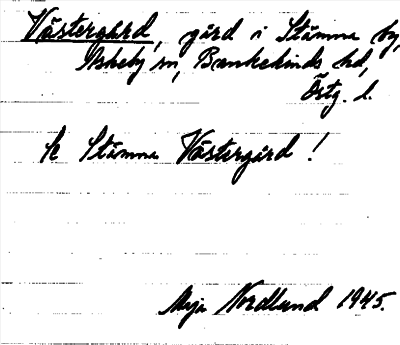 Västergård, gård i Stämma by,
Askeby sn, Bankekinds hd,
Östg. l.
se Stämma Västergård!
Maja Nordlund 1945.